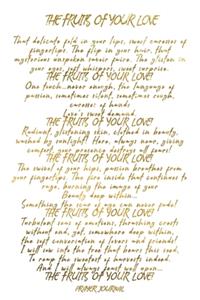 THE FRUITS OF YOUR LOVE
That delicate fold in your lips, sweet caresses of
fingertips. The flip in your hair, that
mysterious unspoken savoir faire. The glisten in
your eyes, soft whispers, sweet surprise.
THE FRUITS OF YOUR LOVE!
One touch...never enough, the language of
passion, sometimes silent, sometimes rough,
caresses of hands
love's sweet demand.
THE FRUITS OF YOUR LOVE!
Radiant, glistening skin, clothed in beauty,
washed by moonlight! Here, always near, giving
comfort your presence destroys all fears!
THE FRUITS OF YOUR LOVE!
The swivel of your hips, passion breathes from
your fingertips. The fire inside that continues to
rage, burning the image of your
Beauty deep within...
Something the scar of age can never fade!
THE FRUITS OF YOUR LOVE!
Turbulent seas of emotions, thrashing crests
without end, yet, somewhere deep within,
the soft conversation of lovers and friends!
I will sow into the tree that bears this seed,
To reap the sweetest of harvests indeed.
And I will always feast well upon...
THE FRUITS OF YOUR LOVE!
PRYMER JOURNAL